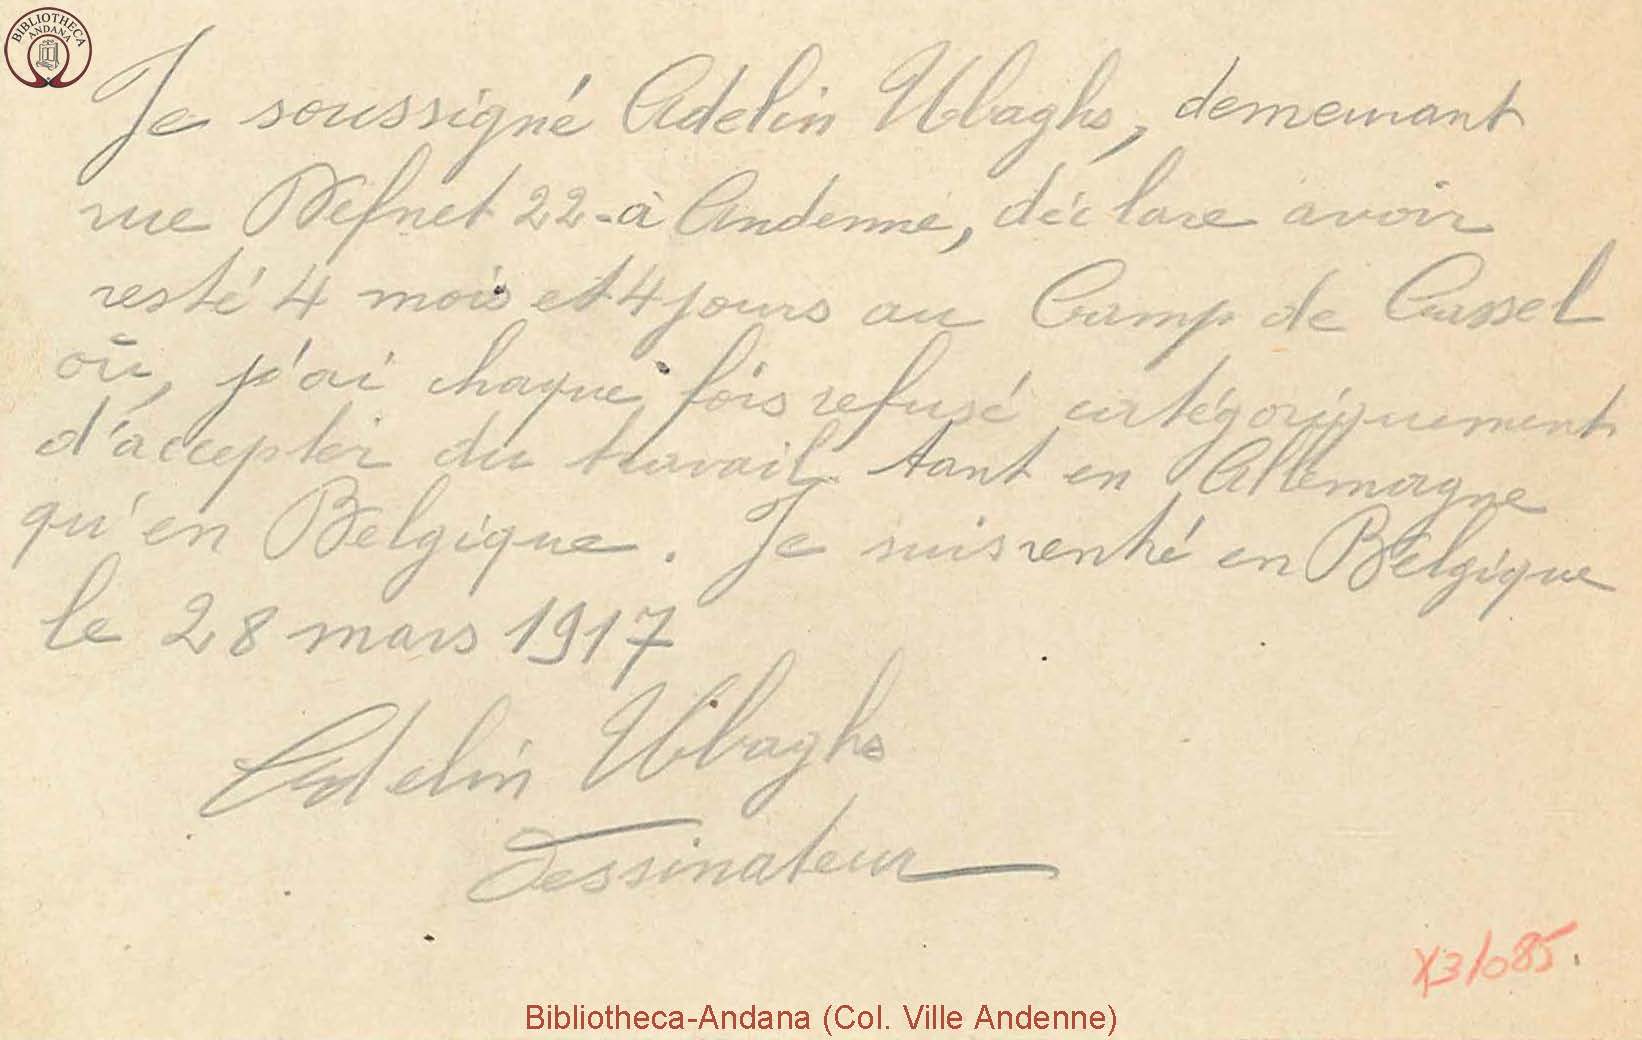 BIBLIOTHECA
ANDANA
Je soussigné Adelin Ubaghs, demeurant
rue Defnet 22 - à Andenne, déclare avoir
resté 4 mois et 4 jours au Camp de Cassel
où, j'ai chaque fois refusé catégoriquement
d'accepter du travail tant en Allemagne
qu'en Belgique. Je suis rentré en Belgique
le 28 mars 1917
Adelin Ubaghs
Dessinateur
X3/085.
Bibliotheca-Andana (Col. Ville Andenne)